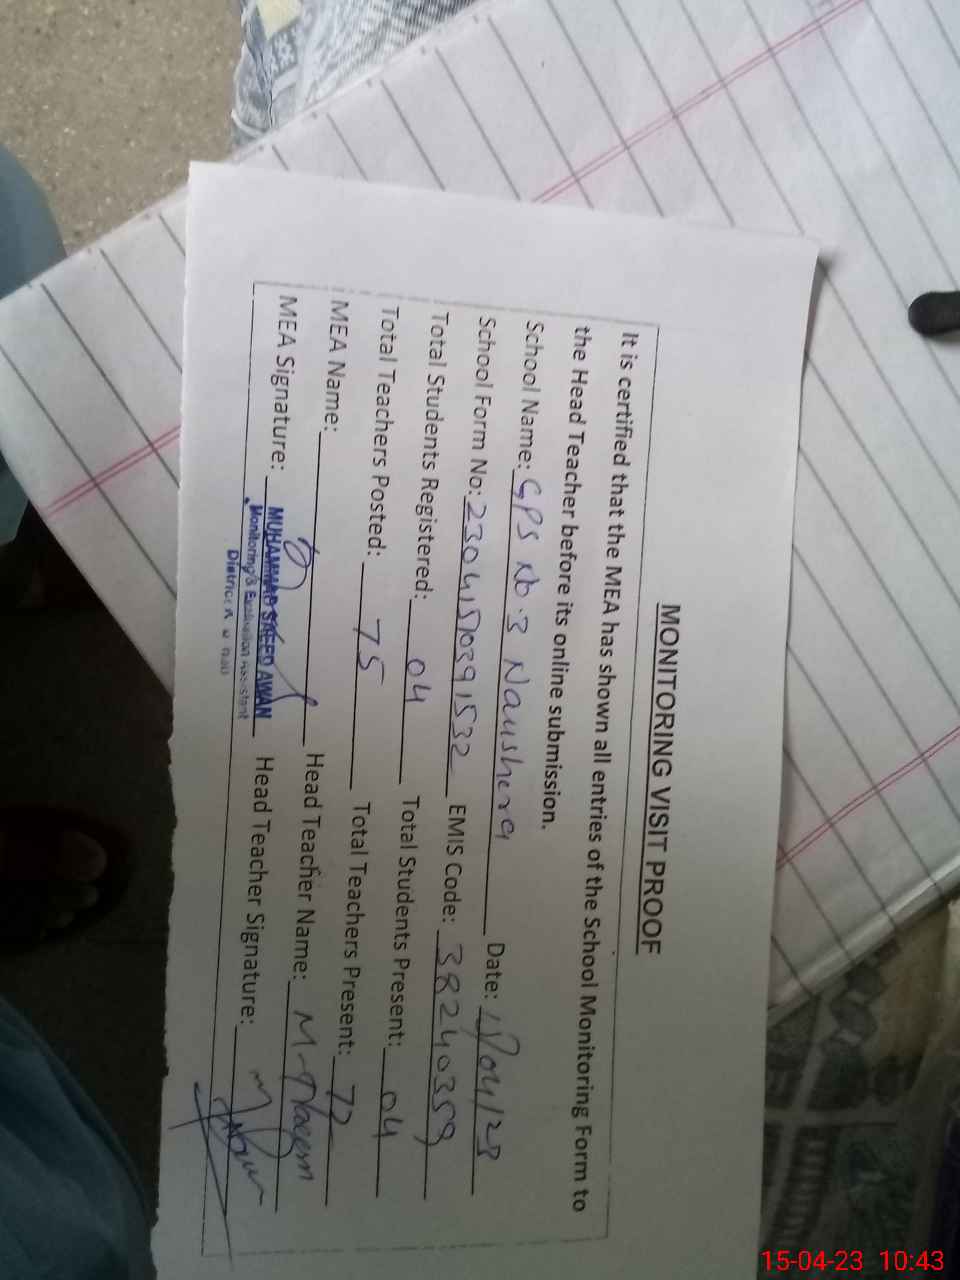 MONITORING VISIT PROOF
It is certified that the MEA has shown all entries of the School Monitoring Form to
the Head Teacher before its online submission.
School Name: GPS No.3 Naushera Date: 15/04/23
School Form No: 23041510391532 EMIS Code: 38240359
Total Students Registered: 04 Total Students Present: 04
Total Teachers Posted: 75 Total Teachers Present: 72
MEA Name: Head Teacher Name: M-Naeem
MEA Signature: Head Teacher Signature:
MUHAMMAD SAEED AWAN
Monitoring & Evaluation Assistant
District
15-04-23 10:43